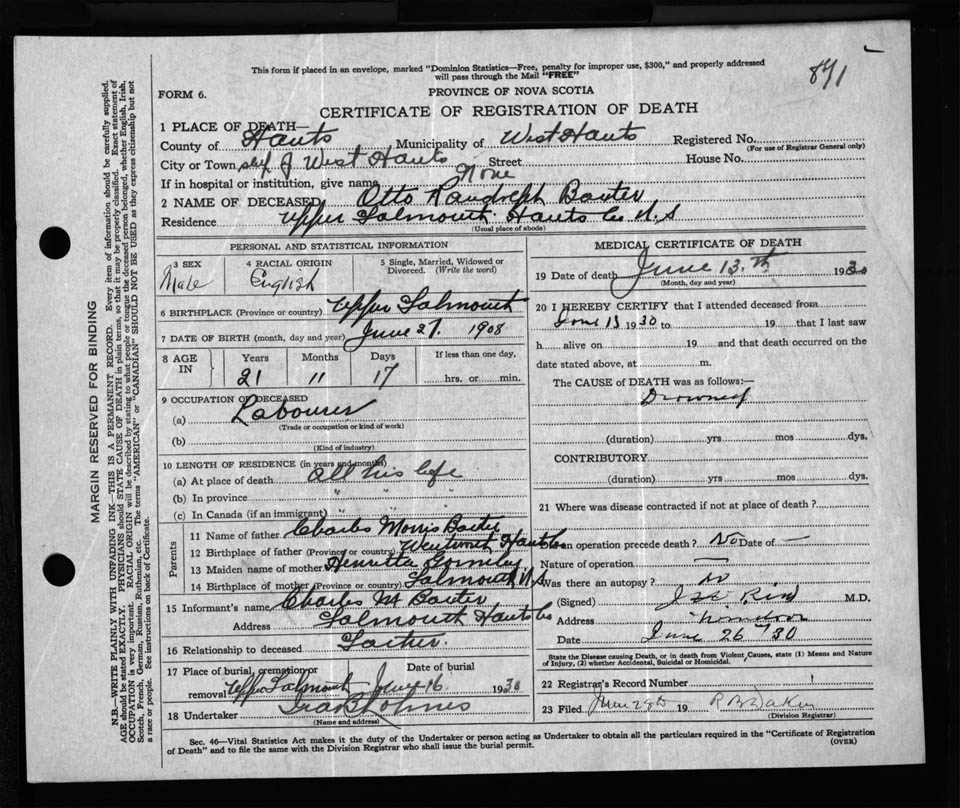 871
This form if placed in an envelope, marked "Dominion Statistics—Free, penalty for improper use, $300," and properly addressed
will pass through the Mail "FREE"
FORM 6.
PROVINCE OF NOVA SCOTIA
CERTIFICATE OF REGISTRATION OF DEATH
1 PLACE OF DEATH—
County of Hants Municipality of West Hants Registered No.
(For use of Registrar General only)
City or Town of West Hants Street House No.
If in hospital or institution, give name None
2 NAME OF DECEASED Otto Randolph Baxter
Residence Upper Falmouth Hants Co N.S
(Usual place of abode)
PERSONAL AND STATISTICAL INFORMATION
3 SEX 4 RACIAL ORIGIN 5 Single, Married, Widowed or
Divorced. (Write the word)
Male English
6 BIRTHPLACE (Province or country) Upper Falmouth
7 DATE OF BIRTH (month, day and year) June 27. 1908
8 AGE IN Years Months Days If less than one day,
21 11 17 hrs. or min.
9 OCCUPATION OF DECEASED
(a) Labourer
(Trade or occupation or kind of work)
(b)
(Kind of industry)
10 LENGTH OF RESIDENCE (in years and months)
(a) At place of death all his life
(b) In province " " "
(c) In Canada (if an immigrant) " "
Parents
11 Name of father Charles Morris Baxter
12 Birthplace of father (Province or country) Hants Co
13 Maiden name of mother Henrietta
14 Birthplace of mother (Province or country) Falmouth N.S
15 Informant's name Charles M Baxter
Address Falmouth Hants Co
16 Relationship to deceased Father
17 Place of burial, cremation or Date of burial
removal Upper Falmouth June 16 1930
18 Undertaker
(Name and address)
MEDICAL CERTIFICATE OF DEATH
19 Date of death June 13.th 1930
(Month, day and year)
20 I HEREBY CERTIFY that I attended deceased from
June 13 1930 to 19 that I last saw
h alive on 19 and that death occurred on the
date stated above, at m.
The CAUSE OF DEATH was as follows:—
Drowned
(duration) yrs mos dys.
CONTRIBUTORY
(duration) yrs mos dys.
21 Where was disease contracted if not at place of death?
Did an operation precede death? No Date of —
Nature of operation —
Was there an autopsy? no
(Signed) M.D.
Address Windsor
Date June 26 30
State the Disease causing Death, or in death from Violent Causes, state (1) Means and Nature
of Injury, (2) whether Accidental, Suicidal or Homicidal.
22 Registrar's Record Number
23 Filed June 19 R B Dakin
(Division Registrar)
Sec. 46—Vital Statistics Act makes it the duty of the Undertaker or person acting as Undertaker to obtain all the particulars required in the "Certificate of Registration
of Death" and to file the same with the Division Registrar who shall issue the burial permit.
(OVER)
MARGIN RESERVED FOR BINDING
N.B.—WRITE PLAINLY WITH UNFADING INK—THIS IS A PERMANENT RECORD. Every item of information should be carefully supplied.
AGE should be stated EXACTLY. PHYSICIANS should STATE CAUSE OF DEATH in plain terms, so that it may be properly classified. Exact statement of
OCCUPATION is very important. RACIAL ORIGIN will be described by stating to what people or tongue the deceased person belonged, whether English, Irish,
Scotch, French, German, Russian, Ruthenian, etc. The terms "AMERICAN" or "CANADIAN" SHOULD NOT BE USED as they express citizenship but not
a race or people. See instructions on back of Certificate.